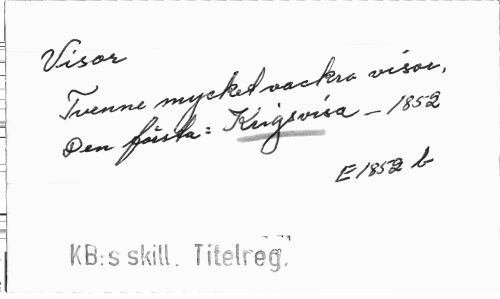 Visor
Tvenne mycket vackra visor.
Den första: Krigsvisa – 1852
E 1852 b
KB:s skill. Titelreg.